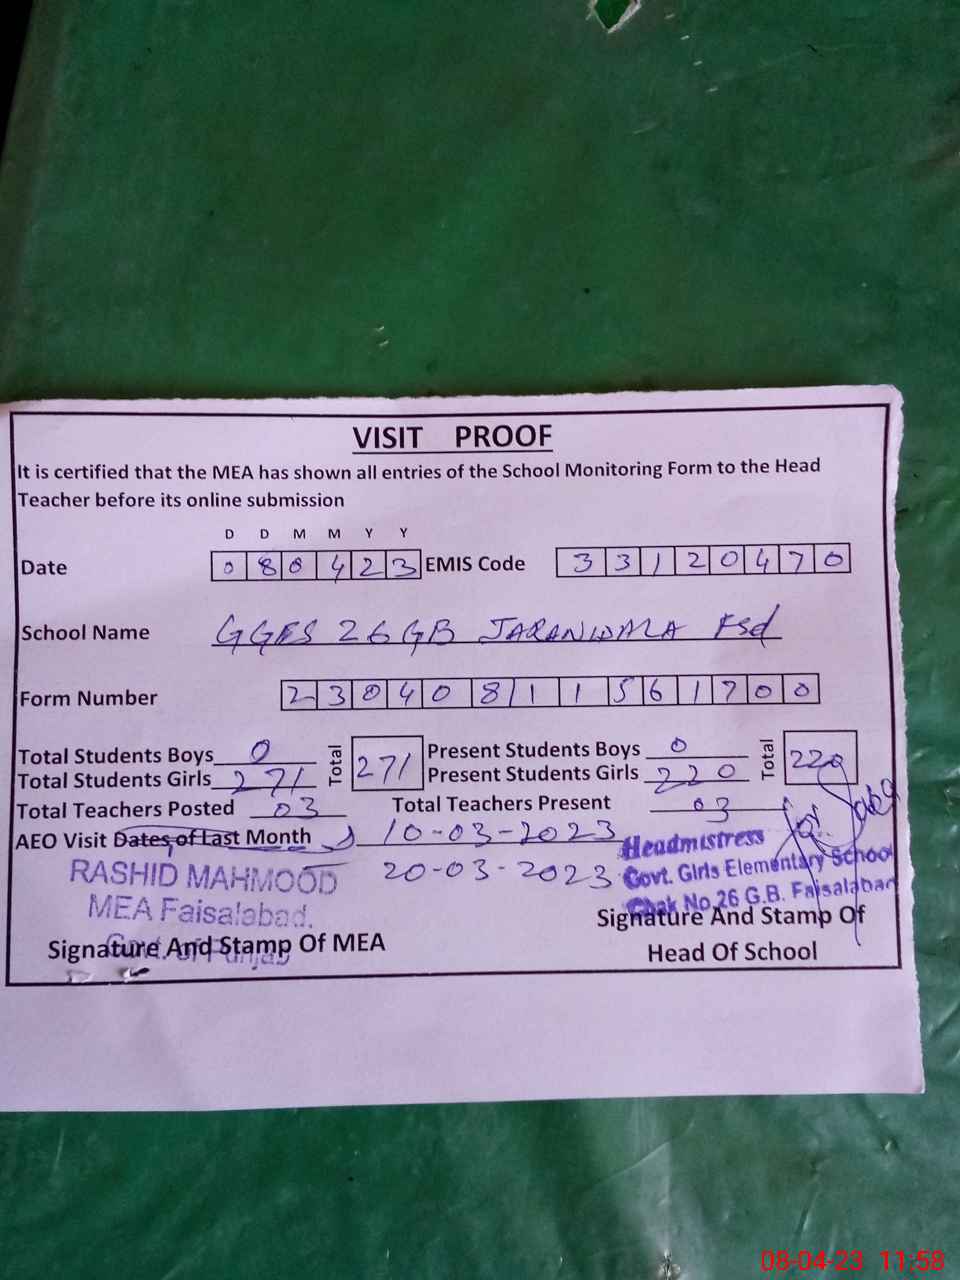 VISIT PROOF
It is certified that the MEA has shown all entries of the School Monitoring Form to the Head
Teacher before its online submission
D D M M Y Y
Date 0 8 0 4 2 3 EMIS Code 3 3 1 2 0 4 7 0
School Name GGES 26 GB JARANWALA Fsd
Form Number 2 3 0 4 0 8 1 1 5 6 1 7 0 0
Total Students Boys 0 Total 271 Present Students Boys 0 Total 220
Total Students Girls 271 Present Students Girls 220
Total Teachers Posted 03 Total Teachers Present 03
AEO Visit Dates of Last Month 10-03-2023
20-03-2023
RASHID MAHMOOD
MEA Faisalabad.
Govt. of Punjab
Signature And Stamp Of MEA
Headmistress
Govt. Girls Elementary School
Chak No.26 G.B. Faisalabad
Signature And Stamp Of
Head Of School
08-04-23 11:58